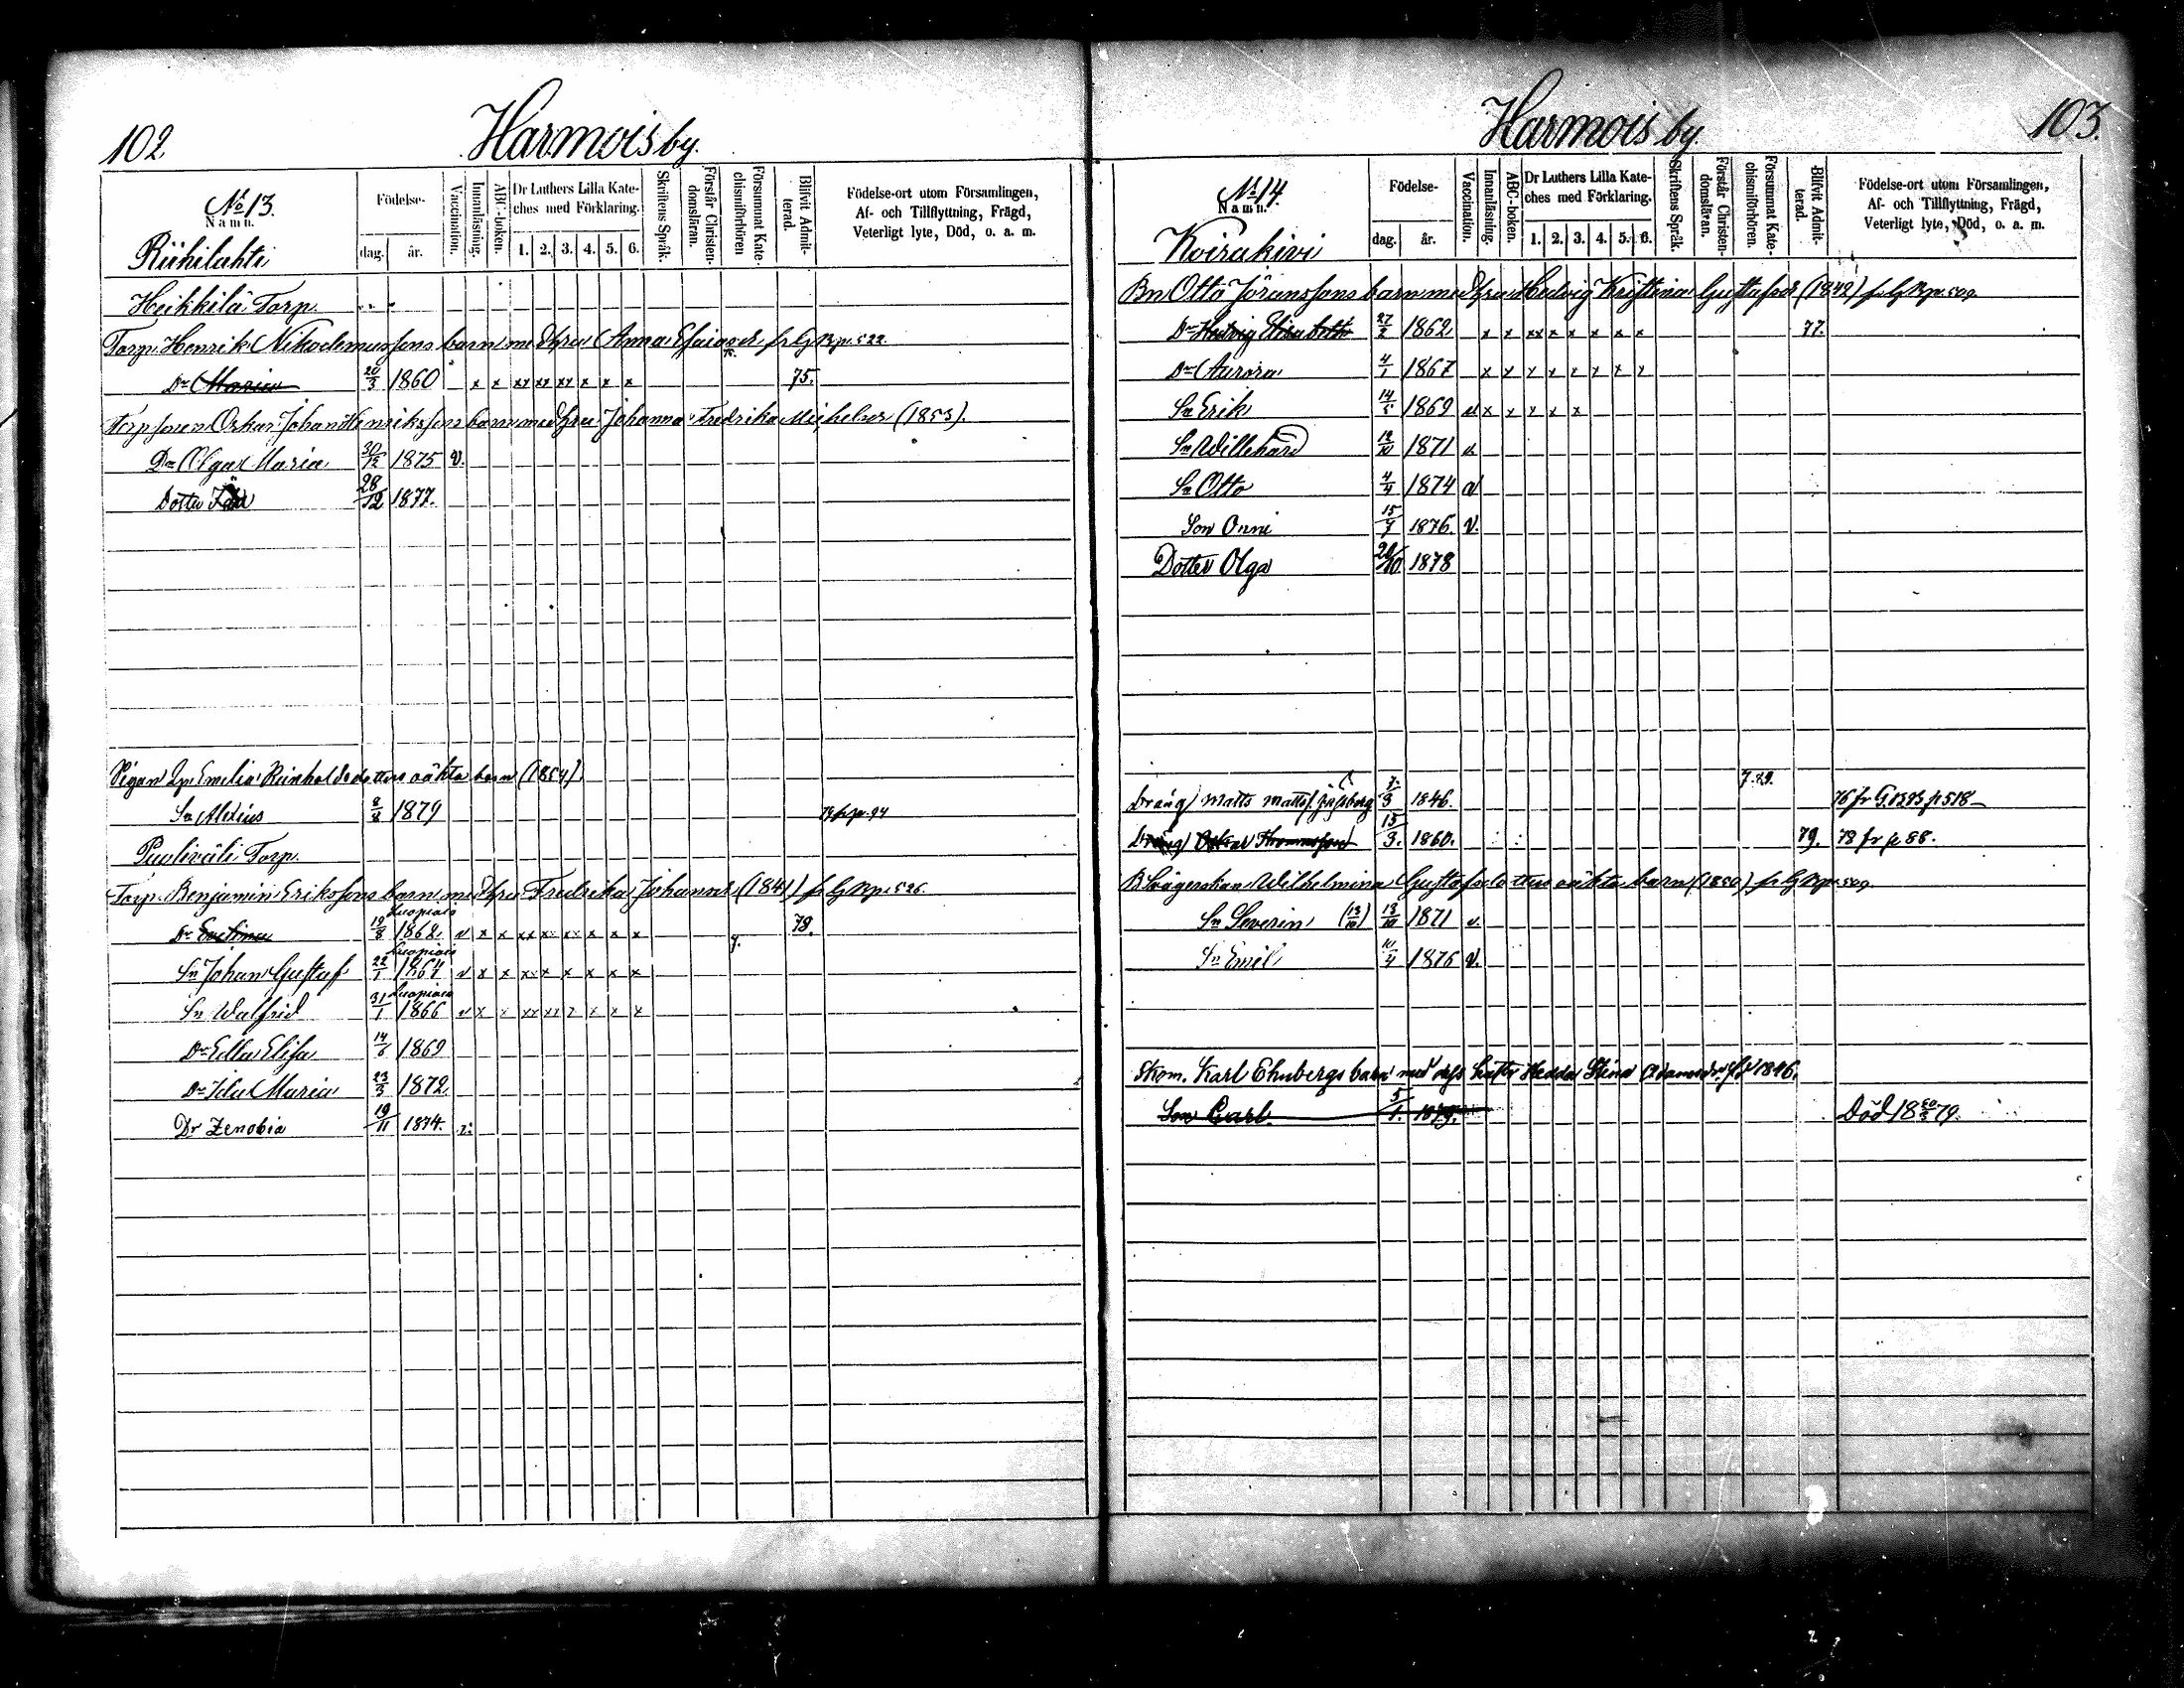 102.
Harmois by.
No 13.
Namn.
Riihilahti
Födelse-
dag.
år.
Vaccination.
Innanläsning.
ABC-boken.
Dr Luthers Lilla Kate-
ches med Förklaring.
1. 2. 3. 4. 5. 6.
Skriftens Språk.
Förstår Christen-
domsläran.
Försummat Kate-
chismiförhören
Blifvit Admit-
terad.
Födelse-ort utom Församlingen,
Af- och Tillflyttning, Frägd,
Veterligt lyte, Död, o. a. m.
Heikkilä Torp.
Torp. Henrik Nikodemussons barn med hru Anna Esaiasdr fr G Bp. 522
Dr Maria 20/3 1860 x x xx xx xx x x x 75.
Torp sonen Oskar Johan Henrikssons barn med hru Johanna Fredrika Michelsdr (1853).
Dr Olga Maria 30/12 1875 v.
Dotter 28/12 1877.
Pigan Emelia Reinholdsdotters oäkta barn (1854)
Sn Alexius 8/8 1879 79 fr p. 94
Puoliväli Torp.
Torp. Benjamin Erikssons barn med hru Fredrika Johansdr (1841) fr G Bp. 526.
Luopiois
Dr 19/8 1862. v x x xx xx xx x x x 7. 78.
Luopiois
Sn Johan Gustaf 22/1 1864 v x x xx x x x x x
Luopiois
Sn Walfrid 31/1 1866 v x x xx xx x x x x
Dr Edla Elisa 14/6 1869
Dr Ida Maria 23/3 1872
Dr Zenobia 19/11 1874. v.
Harmois by.
103.
No 14.
Namn.
Koirakivi
Födelse-
dag.
år.
Vaccination.
Innanläsning.
ABC-boken.
Dr Luthers Lilla Kate-
ches med Förklaring.
1. 2. 3. 4. 5. 6.
Skriftens Språk.
Förstår Christen-
domsläran.
Försummat Kate-
chismiförhören.
Blifvit Admit-
terad.
Födelse-ort utom Församlingen,
Af- och Tillflyttning, Frägd,
Veterligt lyte, Död, o. a. m.
Bn Otto Jöranssons barn med hru Hedvig Kristina Gustafsdr (1842) fr G Bp. 509.
Dr Hedvig Elisabeth 27/2 1862 x x xx x x x x x 77.
Dr Aurora 4/1 1867 x x x x x x x x
Sn Erik 14/5 1869 v x x x x x
Sn Willehard 12/10 1871 v.
Sn Otto 4/4 1874 v
Son Onni 15/7 1876. V.
Dotter Olga 20/10 1878
7.79.
Dräng Matts Mattss. 7/3 1846. 76 fr G. B. p 518
Dräng Oskar Thomasson 15/3. 1860. 79. 78 fr p 88.
Wilhelmina Gustafsdotters oäkta barn (1850) fr G Bp. 509.
Sn Severin (13/10) 13/10 1871 v.
Sn Emil 10/4 1876 V.
Skom. Karl Ehnbergs barn med dess hustr Hedda Stina Adamsdr född 1846.
Son Carl. 5/1. 1879. Död 18 20/3 79.